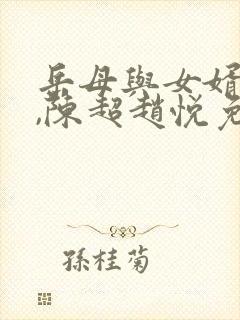 岳母與女婿
,陳超趙悅免
孫桂菊